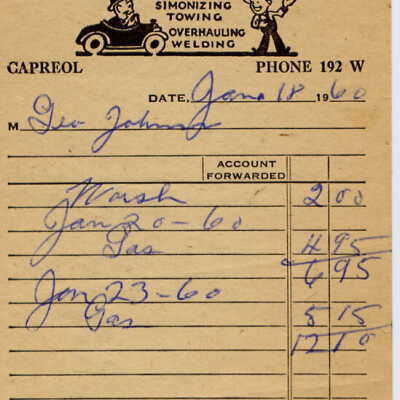 SIMONIZING
TOWING
OVERHAULING
WELDING
CAPREOL PHONE 192 W
DATE, Jan 18 1960
M Geo Johnny
ACCOUNT
FORWARDED
Wash 2 00
Jan 20-60
Gas 4 95
6 95
Jan 23-60
Gas 5 15
12 10